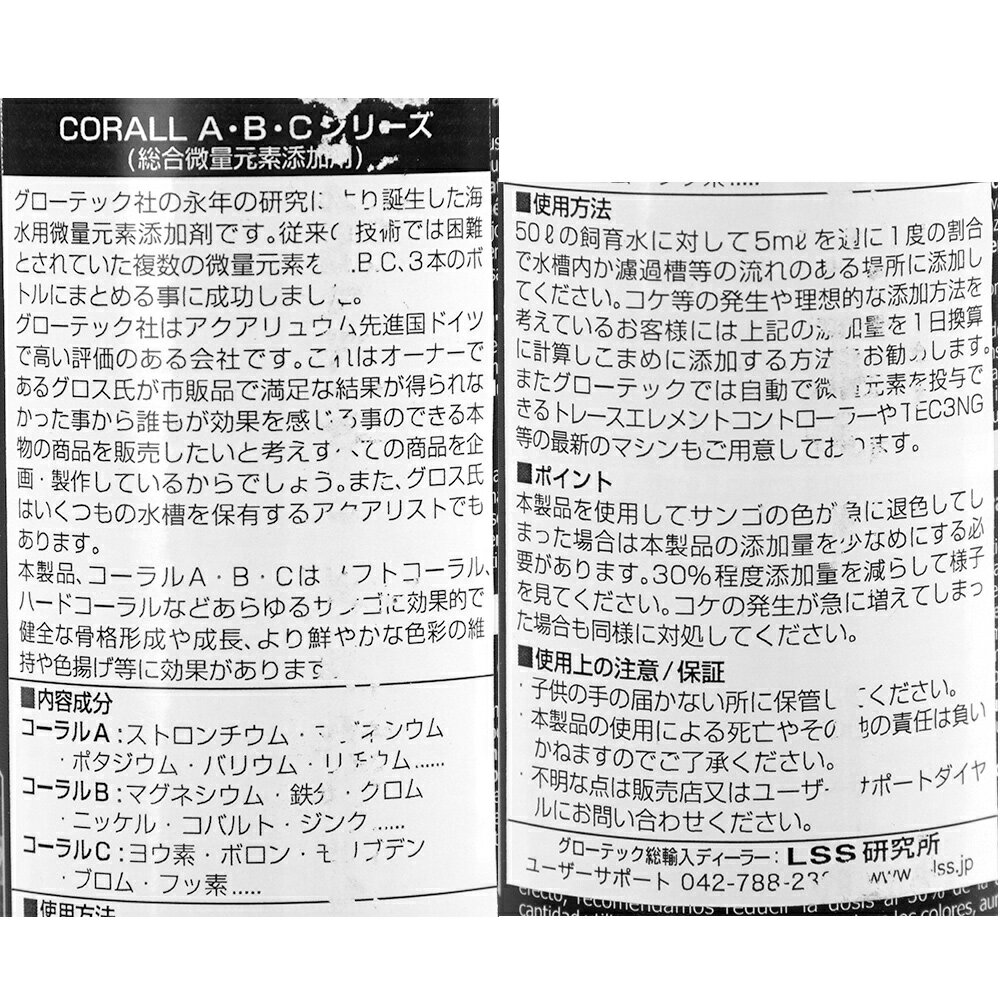 CORALL A・B・Cシリーズ
(総合微量元素添加剤)
グローテック社の永年の研究により誕生した海
水用微量元素添加剤です。従来の技術では困難
とされていた複数の微量元素を .B.C、3本のボ
トルにまとめる事に成功しました。
グローテック社はアクアリュウム先進国ドイツ
で高い評価のある会社です。これはオーナーで
あるグロス氏が市販品で満足な結果が得られな
かった事から誰もが効果を感じる事のできる本
物の商品を販売したいと考えすべての商品を企
画・製作しているからでしょう。また、グロス氏
はいくつもの水槽を保有するアクアリストでも
あります。
本製品、コーラルA・B・Cはソフトコーラル、
ハードコーラルなどあらゆるサンゴに効果的で
健全な骨格形成や成長、より鮮やかな色彩の維
持や色揚げ等に効果があります
■内容成分
コーラルA:ストロンチウム・
・ポタジウム・バリウム・リチウム......
コーラルB:マグネシウム・鉄分・クロム
・ニッケル・コバルト・ジンク......
コーラルC:ヨウ素・ボロン・モリブデン
・ブロム・フッ素......
■使用方法
■使用方法
50ℓの飼育水に対して5mℓを週に1度の割合
で水槽内か濾過槽等の流れのある場所に添加し
てください。コケ等の発生や理想的な添加方法を
考えているお客様には上記の添加量を1日換算
に計算しこまめに添加する方法をお勧めします。
またグローテックでは自動で微量元素を投与で
きるトレースエレメントコントローラーやTEC3NG
等の最新のマシンもご用意しております。
■ポイント
本製品を使用してサンゴの色が急に退色してし
まった場合は本製品の添加量を少なめにする必
要があります。30%程度添加量を減らして様子
を見てください。コケの発生が急に増えてしまっ
た場合も同様に対処してください。
■使用上の注意/保証
・子供の手の届かない所に保管してください。
・本製品の使用による死亡やその他の責任は負い
かねますのでご了承ください。
・不明な点は販売店又はユーザーサポートダイヤ
ルにお問い合わせください。
グローテック総輸入ディーラー:LSS研究所
ユーザーサポート 042-788-23 www. lss.jp
efecto, recomendamos reducir la dosis al 30% de la
cantidad los colores, aun